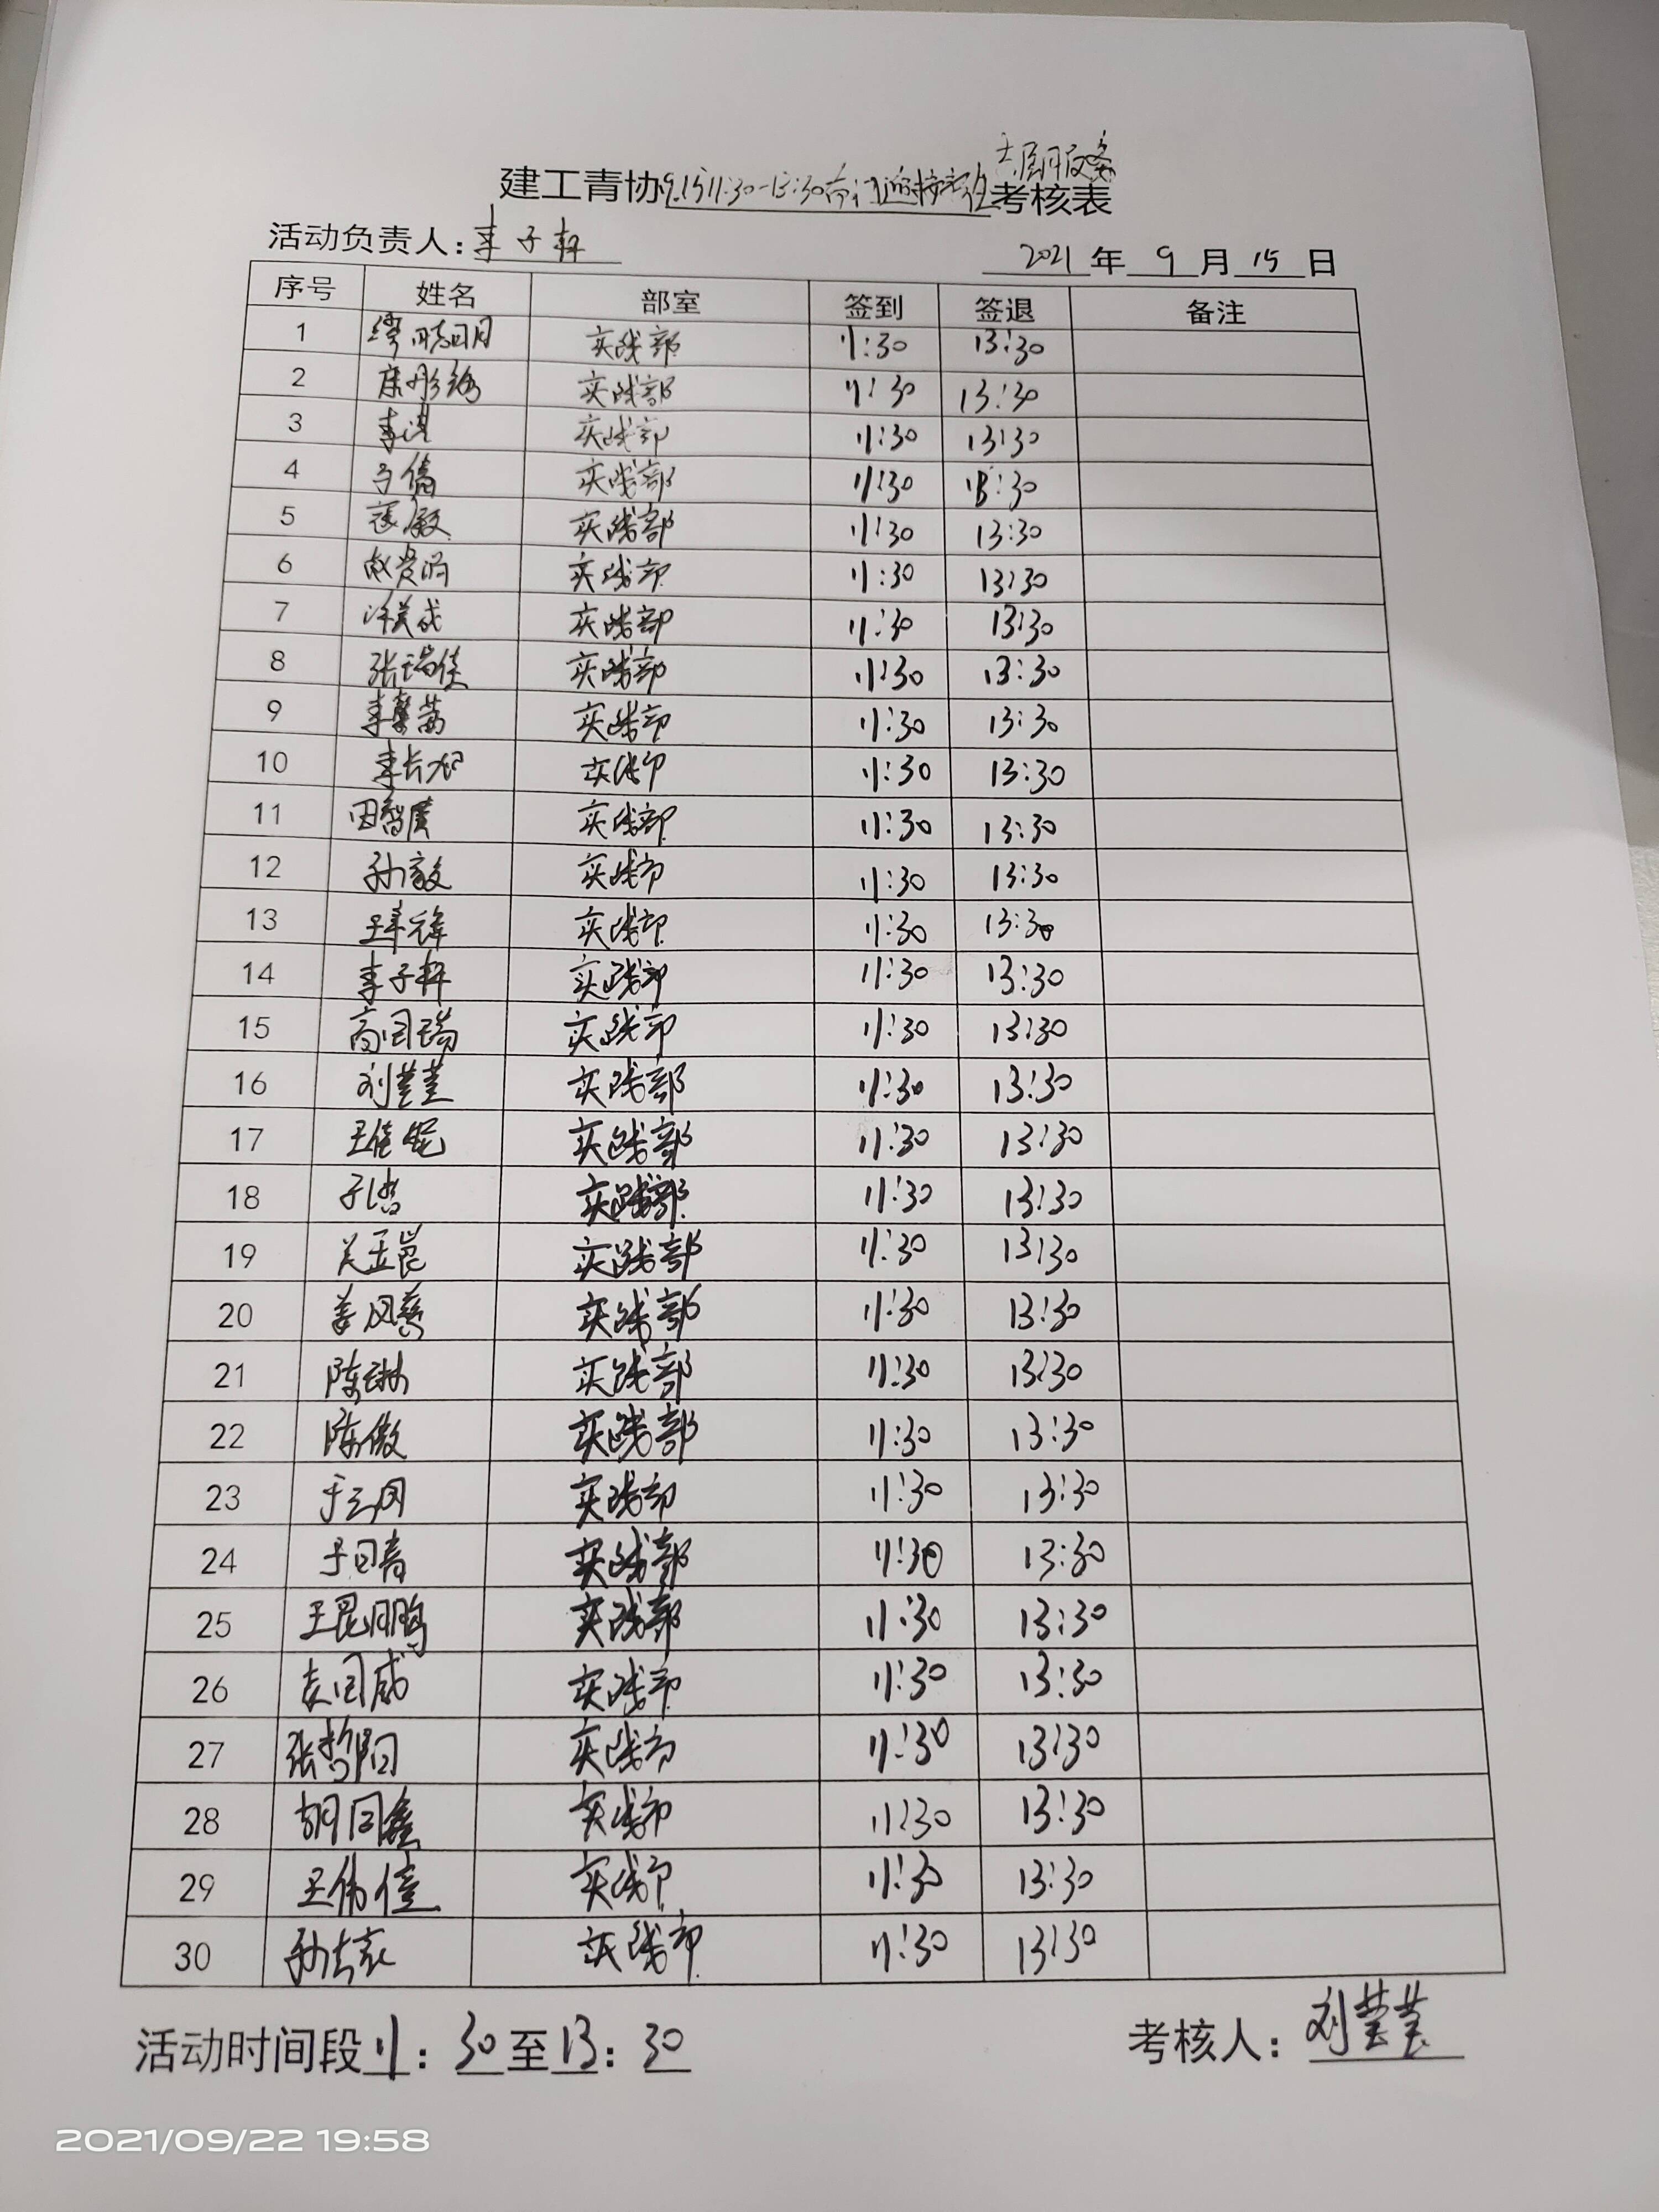 建工青协9.15 11:30-13:30 考核表
活动负责人：李子轩
2021年9月15日
序号 姓名 部室 签到 签退 备注
1 实践部 11:30 13:30
2 实践部 11:30 13:30
3 实践部 11:30 13:30
4 实践部 11:30 13:30
5 实践部 11:30 13:30
6 实践部 11:30 13:30
7 实践部 11:30 13:30
8 张瑞佳 实践部 11:30 13:30
9 实践部 11:30 13:30
10 李长旭 实践部 11:30 13:30
11 实践部 11:30 13:30
12 孙毅 实践部 11:30 13:30
13 实践部 11:30 13:30
14 李子轩 实践部 11:30 13:30
15 高国瑞 实践部 11:30 13:30
16 实践部 11:30 13:30
17 王佳妮 实践部 11:30 13:30
18 实践部 11:30 13:30
19 实践部 11:30 13:30
20 姜凤慈 实践部 11:30 13:30
21 陈琳 实践部 11:30 13:30
22 陈傲 实践部 11:30 13:30
23 实践部 11:30 13:30
24 实践部 11:30 13:30
25 王昆鹏 实践部 11:30 13:30
26 袁国威 实践部 11:30 13:30
27 张哲阳 实践部 11:30 13:30
28 胡同鑫 实践部 11:30 13:30
29 王伟佳 实践部 11:30 13:30
30 实践部 11:30 13:30
活动时间段11：30至13：30
考核人：
2021/09/22 19:58